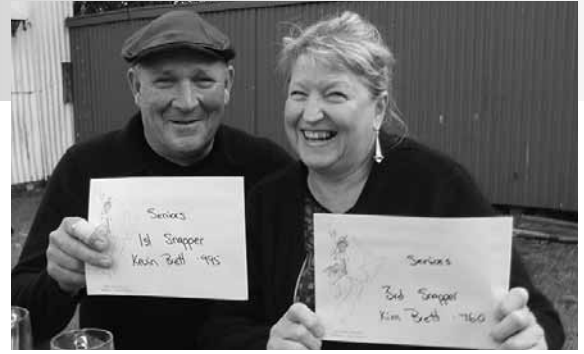 Seniors
1st Snapper
Kevin Brett .995
Seniors
3rd Snapper
Kim Brett .960